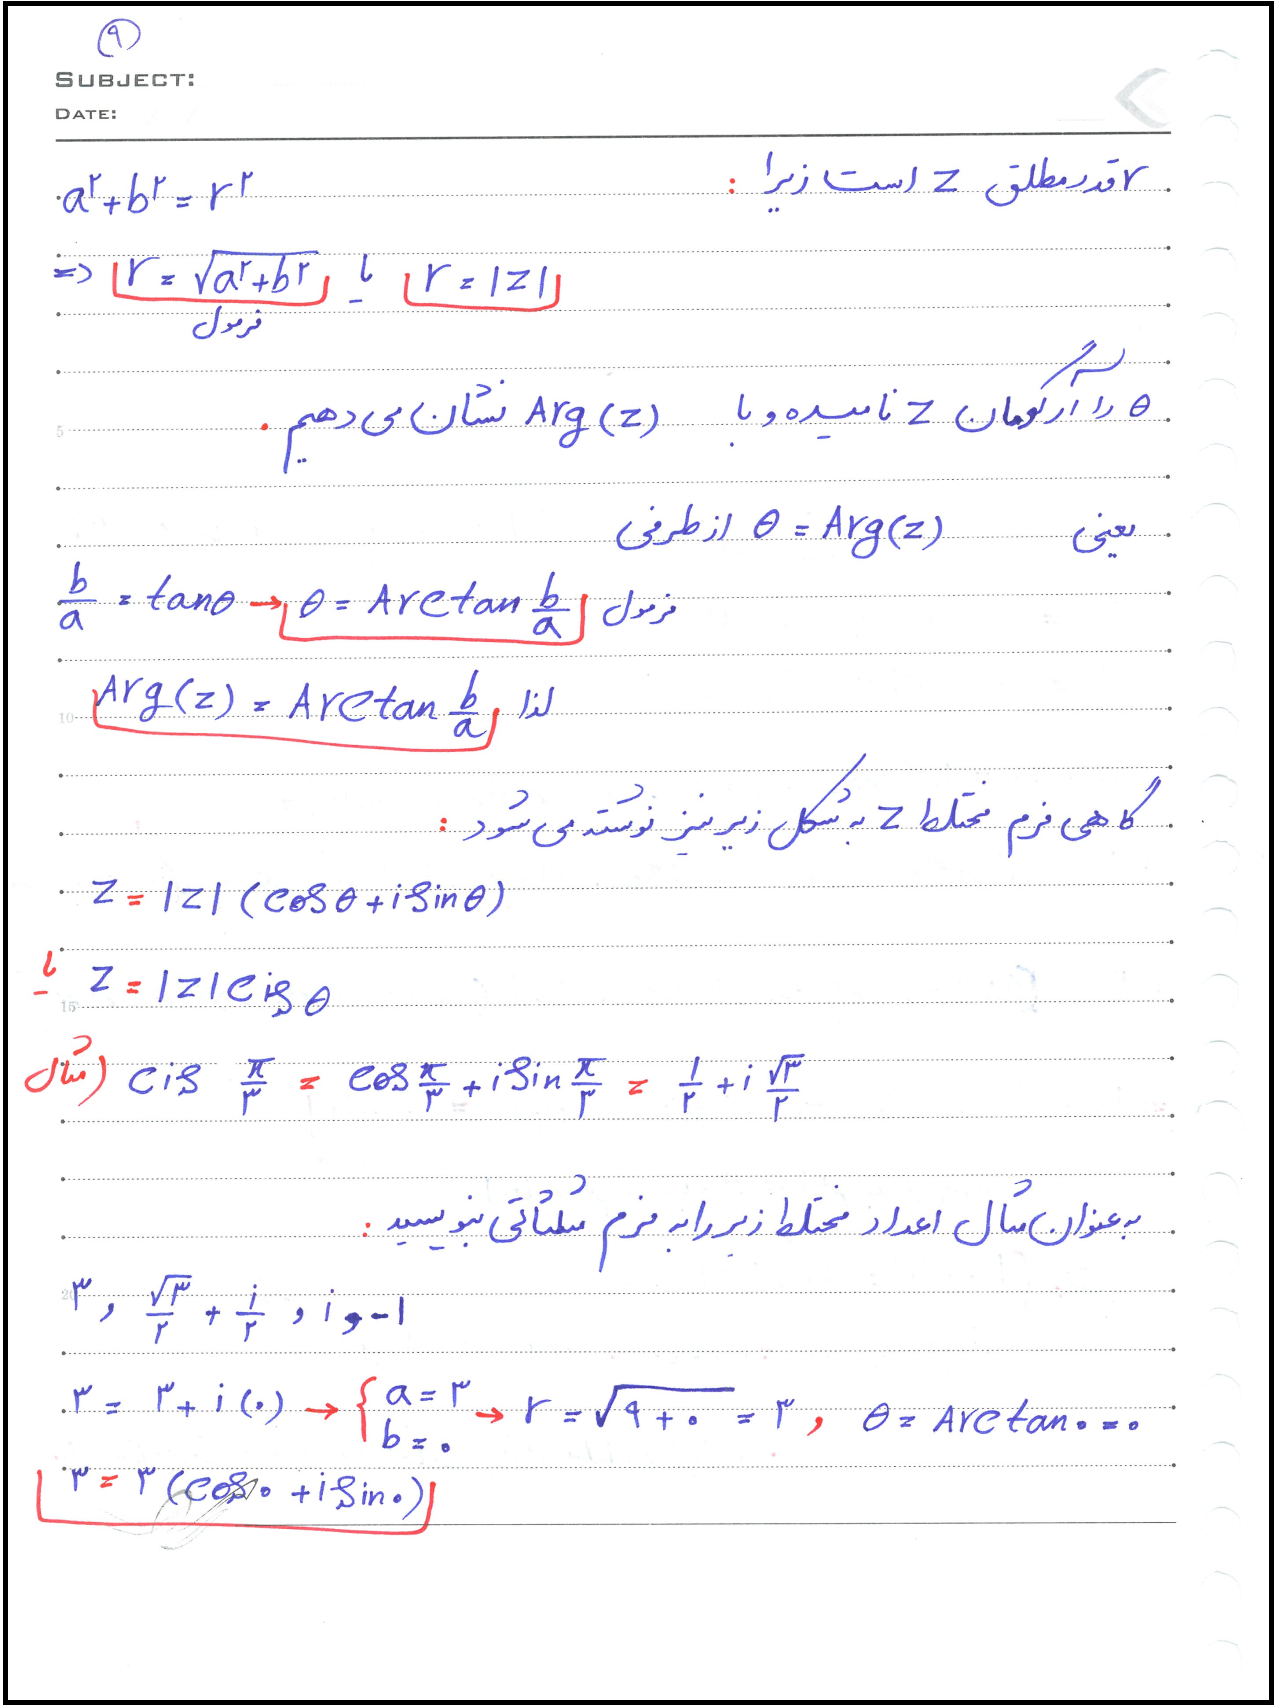 ۹
SUBJECT:
DATE:
r قدر مطلق z است زیرا :
a۲ + b۲ = r۲
=> r = √a۲+b۲ یا r = |z|
فرمول
θ را آرگومان z نامیده و با Arg(z) نشان می دهیم .
یعنی θ = Arg(z) از طرفی
b/a = tanθ → θ = Arctan b/a فرمول
لذا Arg(z) = Arctan b/a
گاهی فرم مختلط z به شکل زیر نیز نوشته می شود :
z = |z| (cosθ + i sinθ)
یا z = |z| cis θ
مثال) cis π/۳ = cos π/۳ + i sin π/۳ = ۱/۲ + i √۳/۲
به عنوان مثال اعداد مختلط زیر را به فرم مثلثاتی بنویسید :
۳ , √۳/۲ + i/۲ , i و -۱
۳ = ۳ + i (۰) → { a = ۳ b = ۰ → r = √۹ + ۰ = ۳ , θ = Arctan ۰ = ۰
۳ = ۳ (cos ۰ + i sin ۰)
5
10
15
20